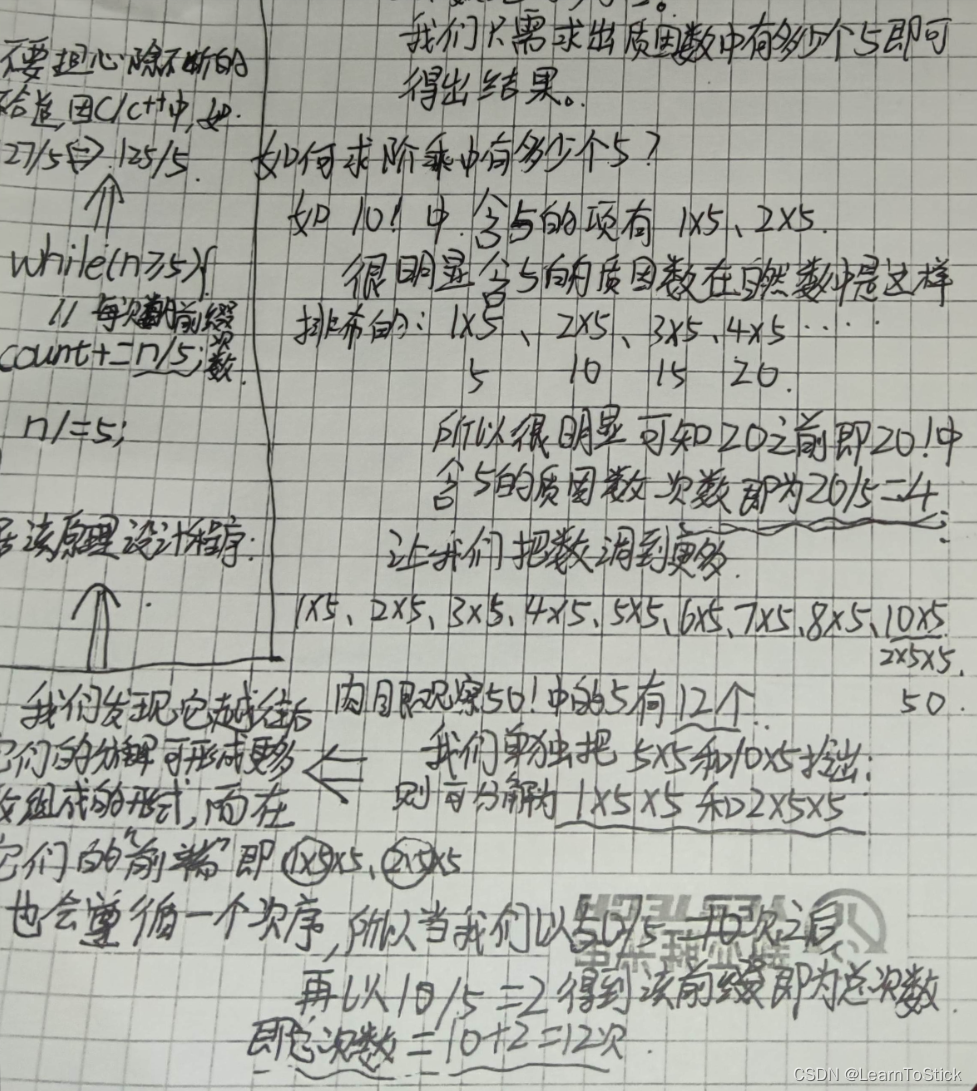 我们只需求出质因数中有多少个5即可
得出结果。
如何求阶乘中有多少个5？
如 10! 中 含5的项有 1×5、2×5.
很明显含5的质因数在自然数中是这样
排布的: 1×5、2×5、3×5、4×5 ····
5 10 15 20.
所以很明显可知20之前即20!中
含5的质因数次数即为20/5=4.
让我们把数调到更多.
1×5、2×5、3×5、4×5、5×5、6×5、7×5、8×5、10×5
2×5×5.
50.
肉眼观察50!中的5有12个.
我们单独把 5×5和10×5拎出:
则可分解为 1×5×5 和2×5×5
我们发现它越往后
它们的分解可形成更多
组成的形式,而在
它们的"前端"即 1×5×5、2×5×5
也会遵循一个次序,所以当我们以50/5=10次之后
再以10/5=2得到该前缀即为总次数
即总次数=10+2=12次.
该原理设计程序:
while(n≥5){
// 每次 前缀
次数.
count+=n/5;
n/=5;
不要担心除不断的
因C/C++中,如
27/5 ⇔ 125/5.
CSDN @LearnToStick